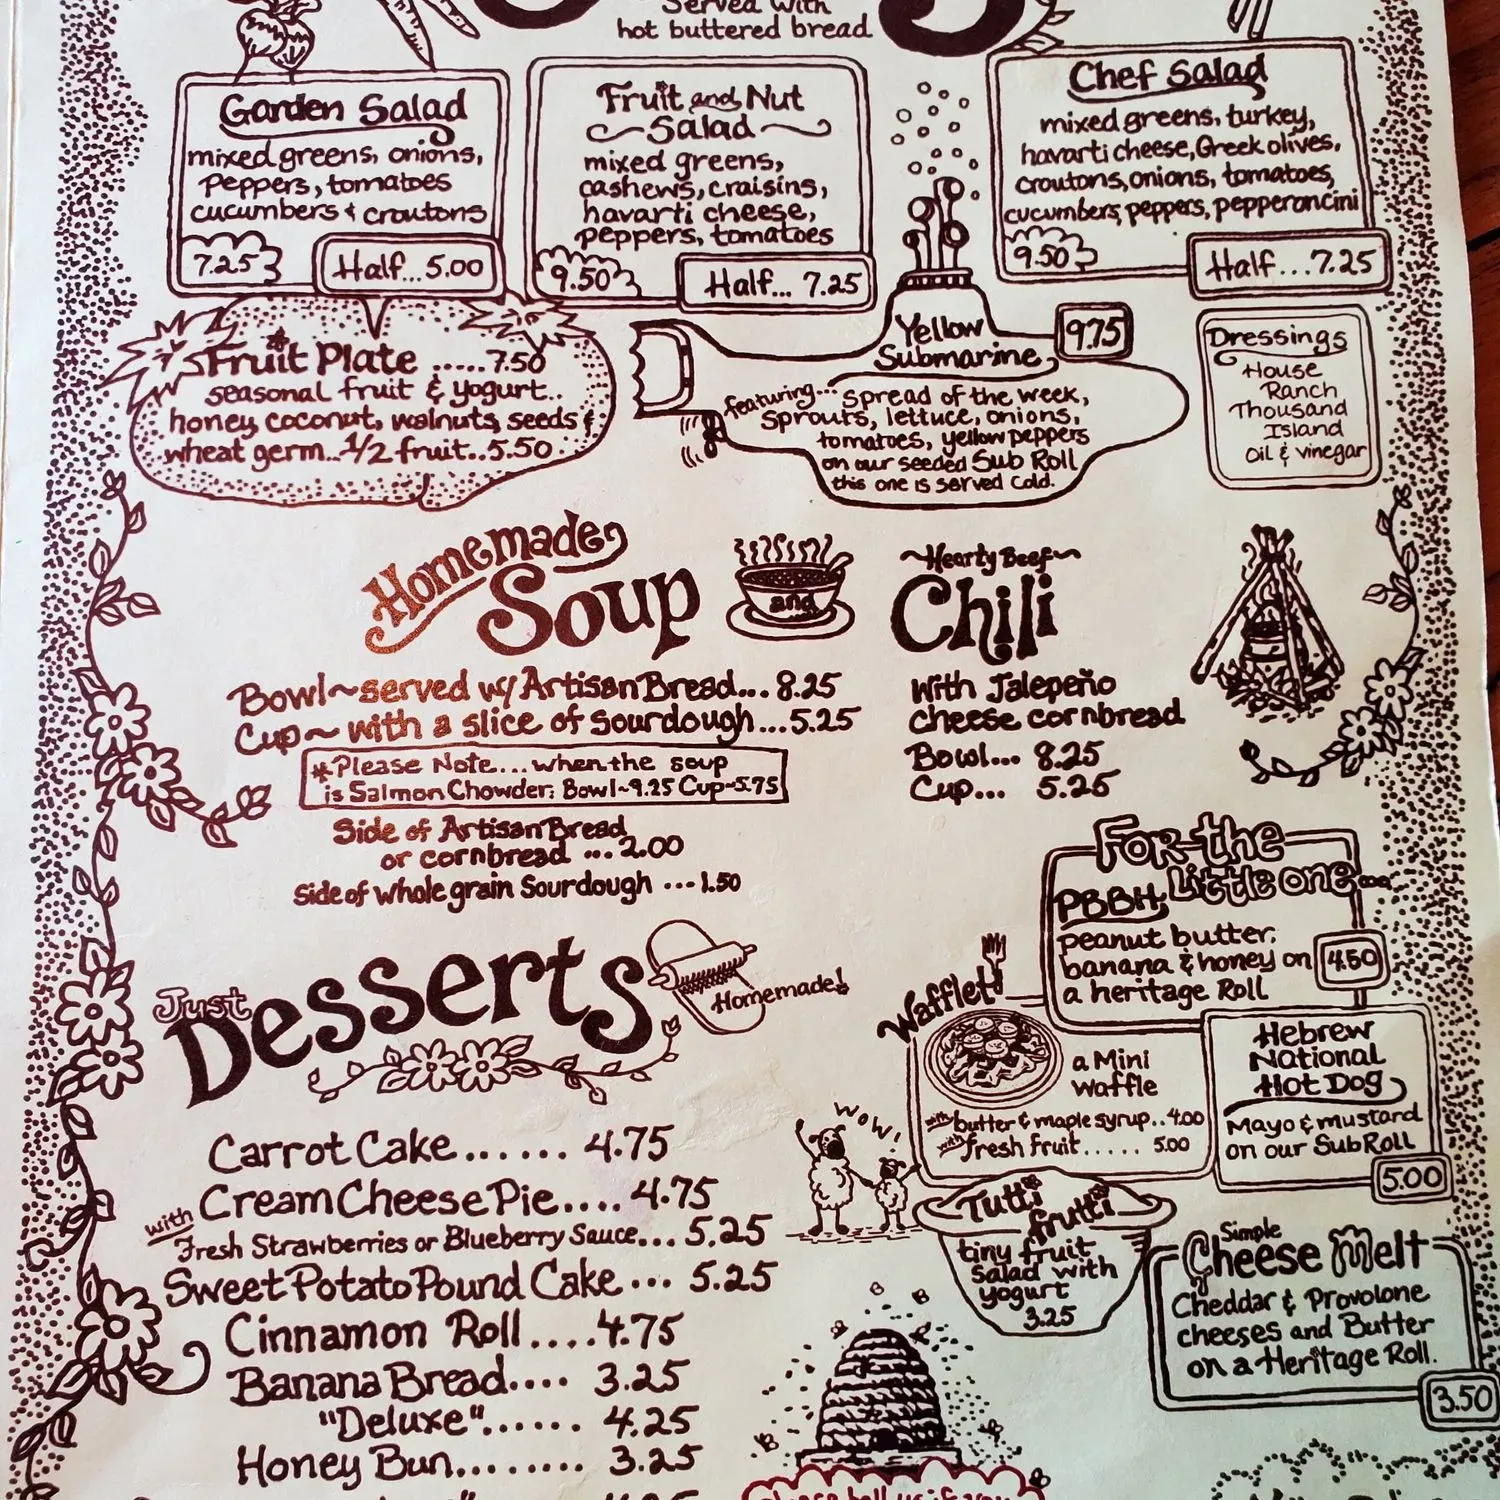 Served with
hot buttered bread
Garden Salad
mixed greens, onions,
peppers, tomatoes
cucumbers & croutons
7.25
Half...5.00
Fruit and Nut
Salad
mixed greens,
cashews, craisins,
havarti cheese,
peppers, tomatoes
9.50
Half... 7.25
Chef Salad
mixed greens, turkey,
havarti cheese, Greek olives,
croutons, onions, tomatoes,
cucumbers, peppers, pepperoncini
9.50
Half...7.25
Fruit Plate .....7.50
seasonal fruit & yogurt..
honey, coconut, walnuts, seeds &
wheat germ...1/2 fruit..5.50
Yellow
Submarine
9.75
featuring... spread of the week,
sprouts, lettuce, onions,
tomatoes, yellow peppers
on our seeded Sub Roll
this one is served cold.
Dressings
House
Ranch
Thousand
Island
Oil & vinegar
Homemade
Soup
and
Bowl~served w/ Artisan Bread... 8.25
Cup~ with a slice of sourdough...5.25
*Please Note...when the soup
is Salmon Chowder: Bowl~9.25 Cup~5.75
Side of Artisan Bread
or cornbread ...2.00
Side of whole grain Sourdough ...1.50
~Hearty Beef~
Chili
with Jalepeño
cheese cornbread
Bowl... 8.25
Cup... 5.25
For the
Little one...
PBBH
peanut butter,
banana & honey on
a heritage Roll
4.50
Wafflet!
a Mini
waffle
with butter & maple syrup..4.00
with fresh fruit..... 5.00
Hebrew
National
Hot Dog
Mayo & mustard
on our Sub Roll
5.00
WOW!
Tutti
frutti
tiny fruit
salad with
yogurt
3.25
Simple
Cheese Melt
Cheddar & Provolone
cheeses and Butter
on a Heritage Roll.
3.50
Just
Desserts
Homemade!
Carrot Cake...... 4.75
Cream Cheese Pie.... 4.75
with Fresh Strawberries or Blueberry Sauce... 5.25
Sweet Potato Pound Cake ... 5.25
Cinnamon Roll....4.75
Banana Bread.... 3.25
"Deluxe"...... 4.25
Honey Bun........ 3.25